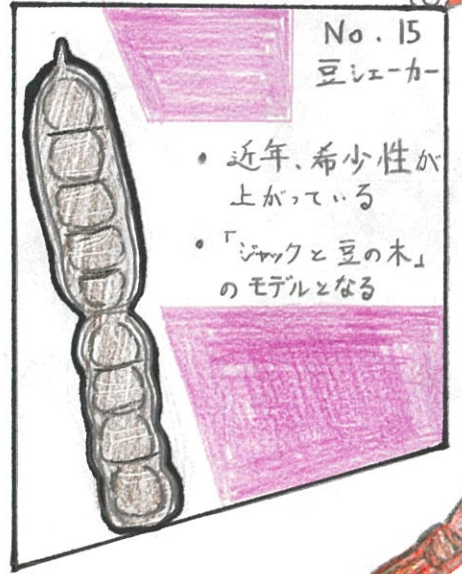 No. 15
豆シェーカー
• 近年、希少性が
上がっている
• 「ジャックと豆の木」
のモデルとなる